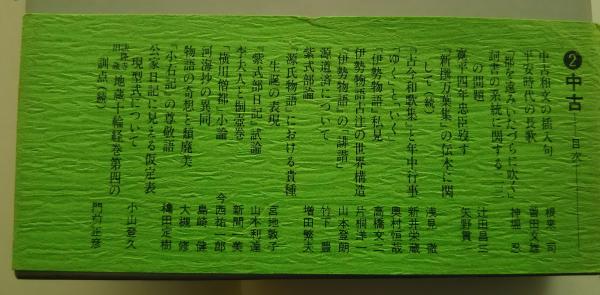 ❷中古 ―目次―
中古和文の挿入句 根来 司
平安時代の長歌 曽田文雄
「都を遠みいたづらに吹く」 神堀 忍
詞書の系統に関する一二の問題 辻田昌三
寛平四年忠臣歿す 矢野貫一
『新撰万葉集』の伝本に関して（続） 浅見 徹
『古今和歌集』と年中行事 新井栄蔵
「ゆく」と「いく」 奥村恒哉
『伊勢物語』私見 高橋文二
伊勢物語古注の世界構造 片桐洋一
『伊勢物語』の「誹諧」 山本登朗
源道済について 竹下 豊
紫式部論 増田繁夫
『源氏物語』における貴種生誕の表現 宮地敦子
『紫式部日記』試論 山本利達
李夫人と桐壺巻 新間一美
「横川僧都」小論 今西祐一郎
河海抄の異同 島崎 健
物語の奇想と頽廃美 大槻 修
『小右記』の尊敬語 穐田定樹
公家日記に見える仮定表現型式について 小山登久
地蔵十輪経巻第四の訓点（続） 門前正彦